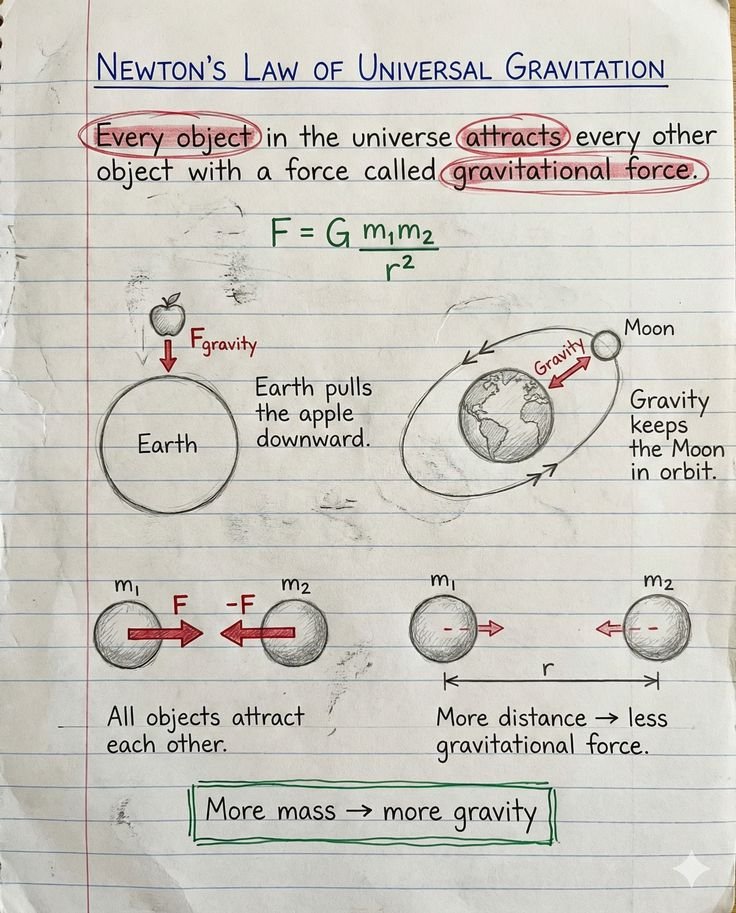 NEWTON'S LAW OF UNIVERSAL GRAVITATION
Every object in the universe attracts every other
object with a force called gravitational force.
F = G m₁m₂
r²
Fgravity
Earth
Earth pulls
the apple
downward.
Moon
Gravity
Gravity
keeps
the Moon
in orbit.
m₁
m₂
F
-F
All objects attract
each other.
m₁
m₂
r
More distance → less
gravitational force.
More mass → more gravity